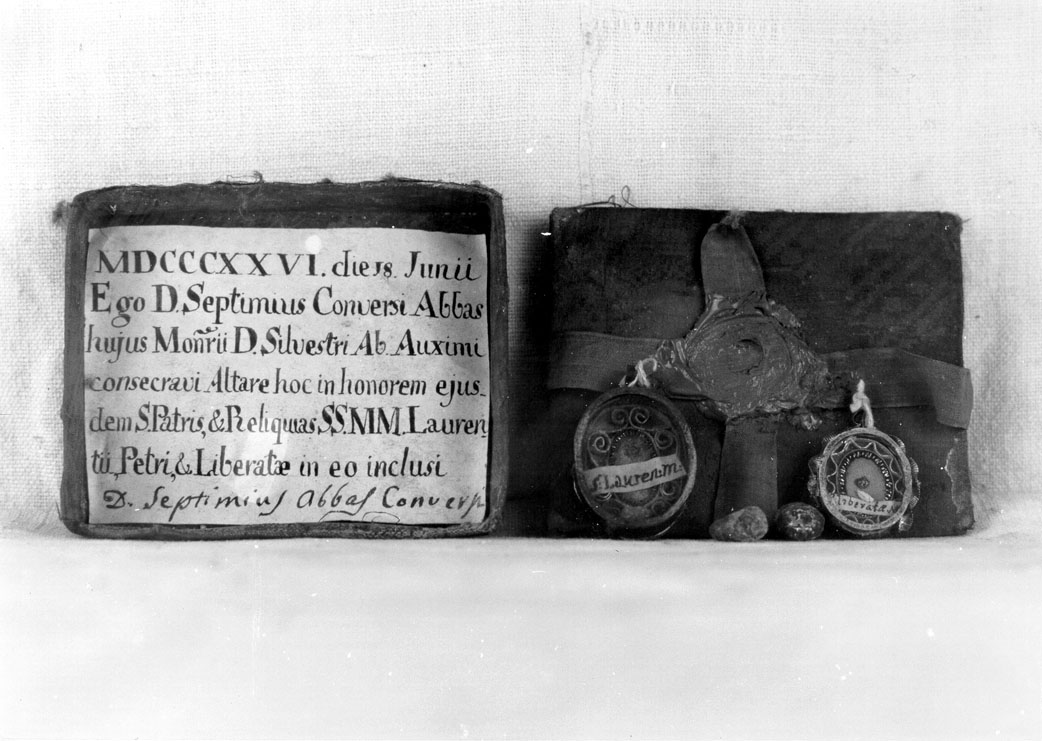 MDCCCXXVI. die 18. Junii
Ego D. Septimius Conversi Abbas
hujus Moñrii D. Silvestri Ab Auximi
consecravi Altare hoc in honorem ejus-
dem S. Patris, & Reliquias SS. MM. Lauren
tii, Petri, & Liberatæ in eo inclusi
D. Septimius Abbas Conversi
S. Lauren. m.
Liberatæ